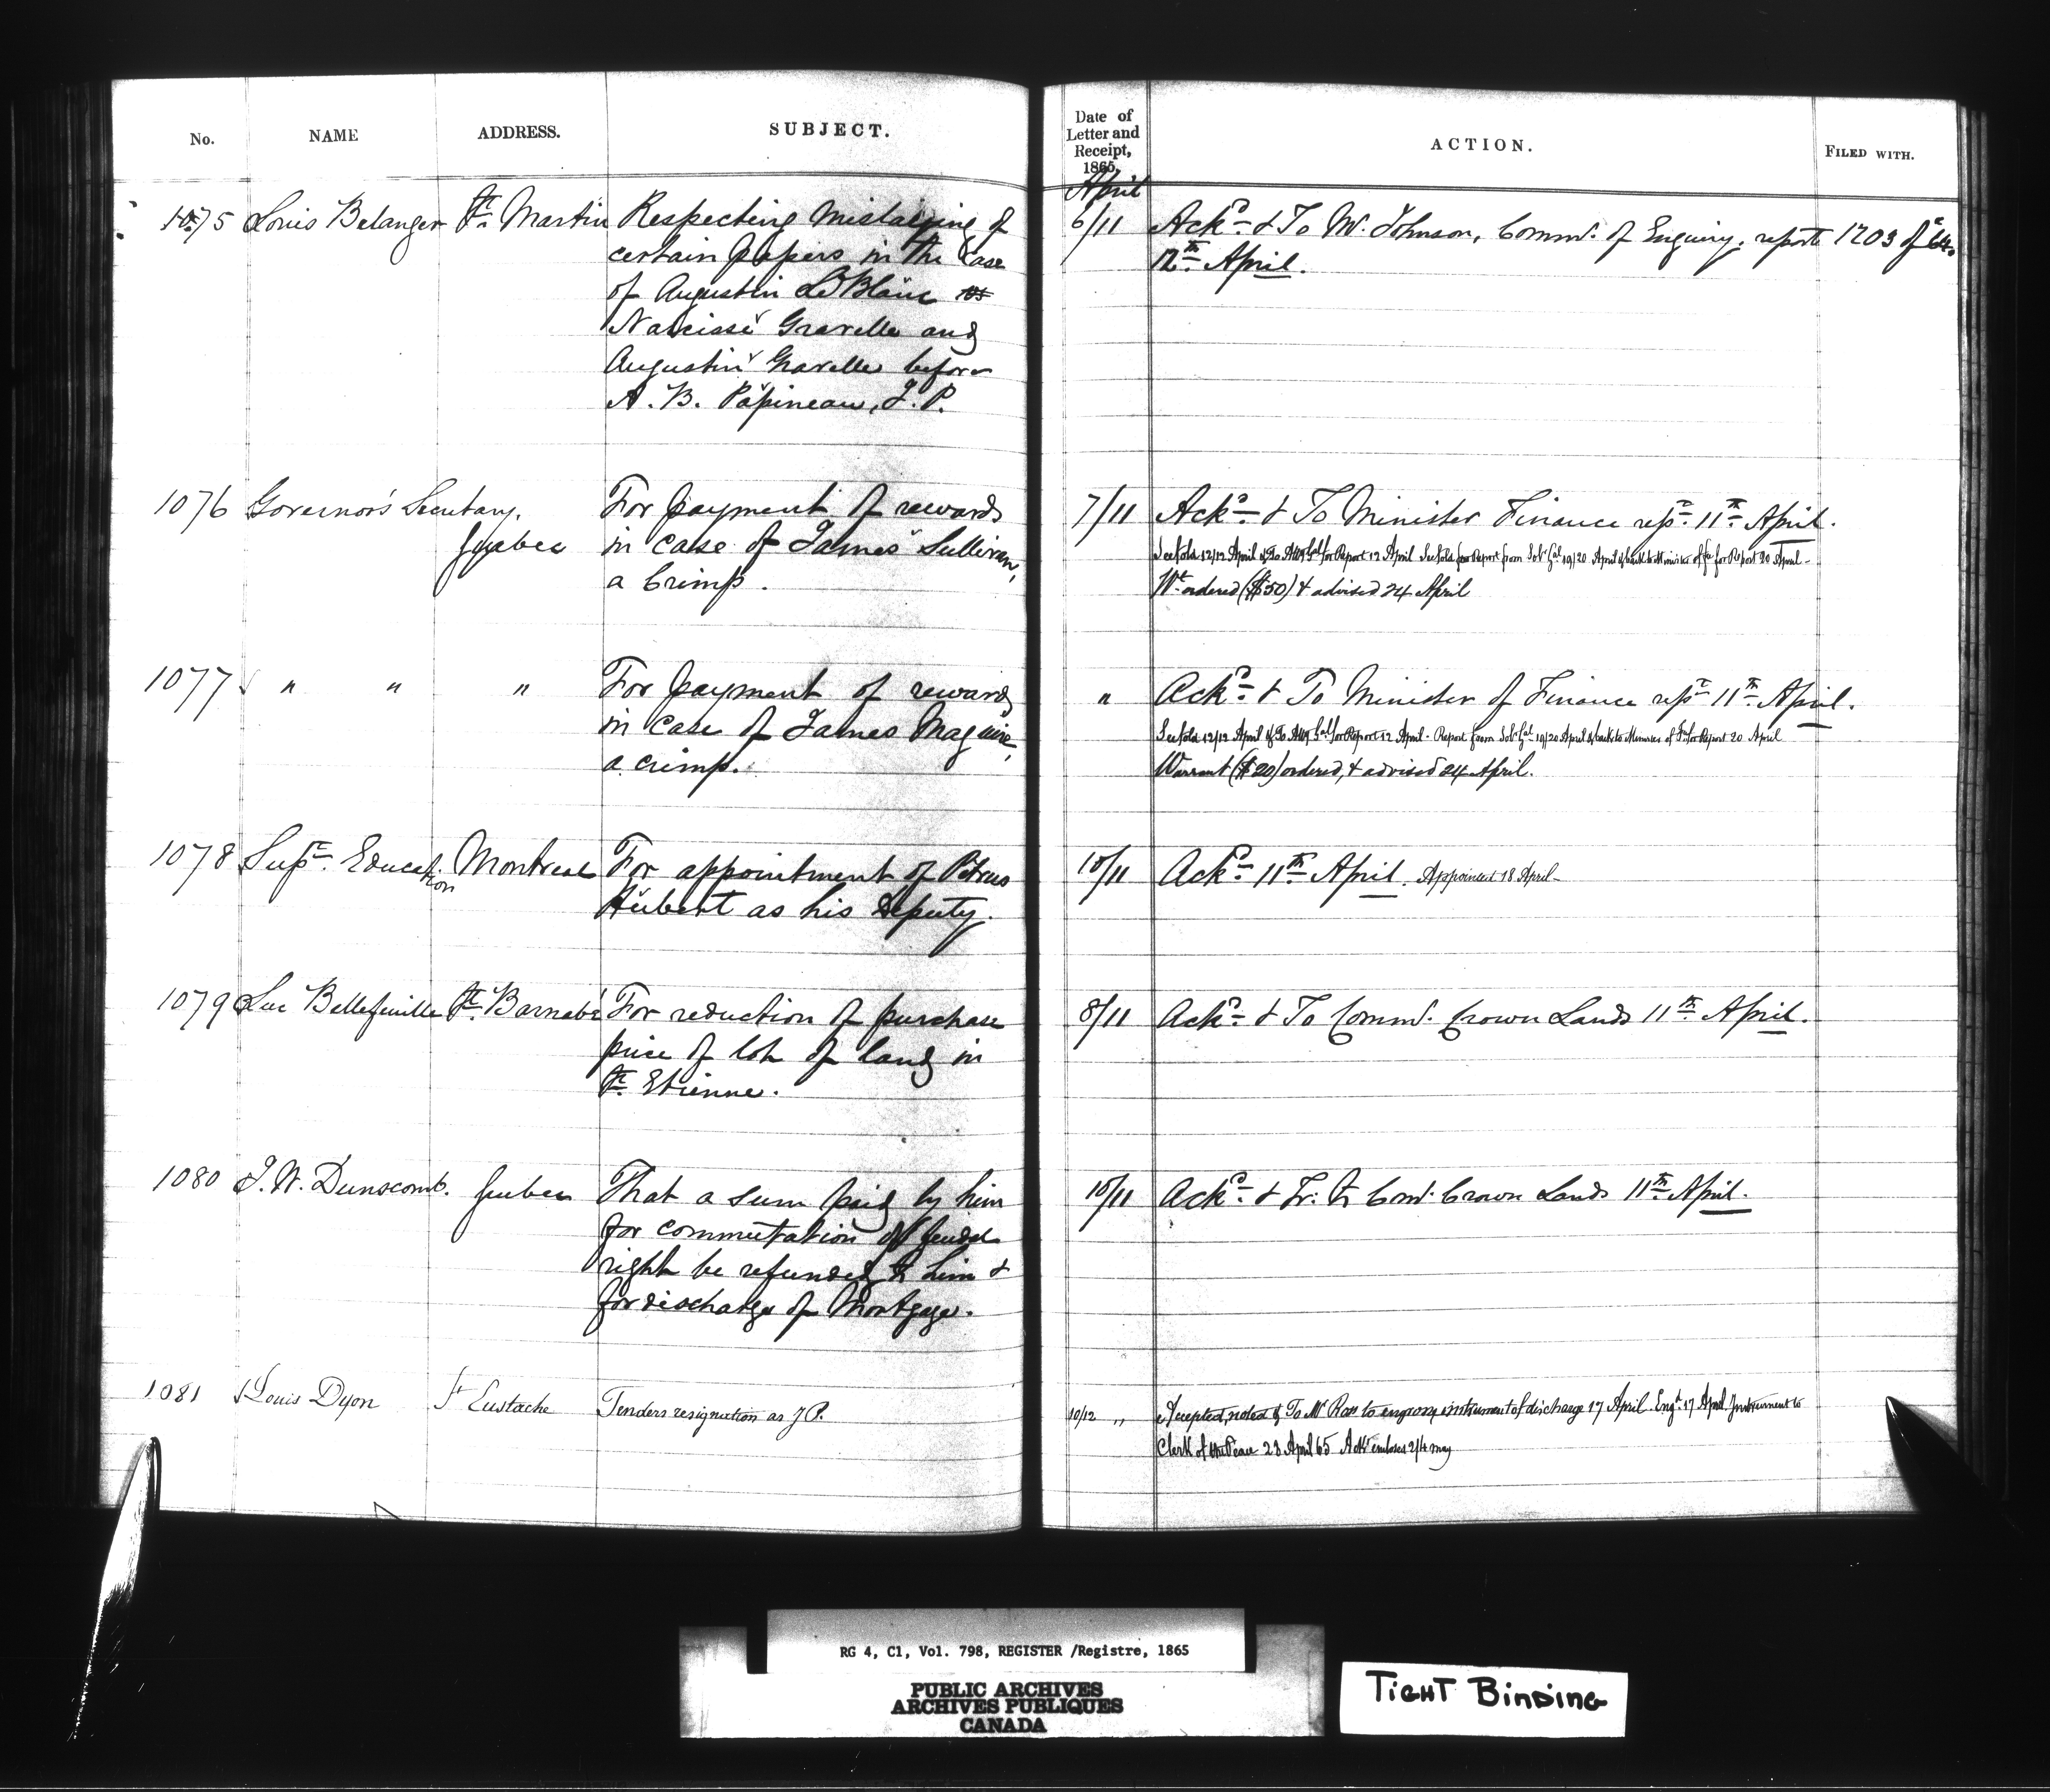 No. NAME ADDRESS. SUBJECT.
1075 Louis Belanger St. Martin Respecting mislaying of
certain papers in the case
of Augustin LeBlanc vs
Narcisse Gravelle and
Augustin Gravelle before
A. B. Papineau, J. P.
1076 Governor's Secretary, For payment of rewards
Quebec in case of James Sullivan,
a Crimp.
1077 " " " For payment of reward
in case of James Maguire,
a crimp.
1078 Supt. Education Montreal For appointment of Petrus
Hubert as his Deputy.
1079 Luc Bellefeuille St. Barnabé For reduction of purchase
price of lot of land in
St. Etienne.
1080 J. W. Dunscomb. Quebec That a sum paid by him
for commutation of feudal
right be refunded to him &
for discharge of Mortgage.
1081 Louis Dyon St Eustache Tenders resignation as J P.
Date of
Letter and
Receipt,
1865.
ACTION. FILED WITH.
April
6/11 Ackd. & To W. Johnson, Commr. of Enquiry, report 1203 of 64.
12th April.
7/11 Ackd. & To Minister Finance rept. 11th April.
12/12 April & To Atty Gal for Report 12 April for Report from Solr Gal 19/20 April & back to Minister of Fce for Report 20 April
Wt ordered ($50) & advised 24 April
" Ackd. & To Minister of Finance rept 11th April.
12/12 April & To Atty Gal for Report 12 April. Report from Solr Gal 19/20 April & back to Minister of Fce for Report 20 April
Warrant ($20) ordered, & advised 24 April.
10/11 Ackd. 11th April. Appointed 18 April
8/11 Ackd. & To Commr. Crown Lands 11th April.
10/11 Ackd. & Tr. to Comr. Crown Lands 11th April.
10/12 " Accepted, noted & To Mr Ross to engross instrument of discharge 17 April Engd 17 April Instrument to
Clerk of the Peace 23 April 65 Ackt encloses 2/4 may
RG 4, C1, Vol. 798, REGISTER /Registre, 1865
PUBLIC ARCHIVES
ARCHIVES PUBLIQUES
CANADA
TIGHT BINDING